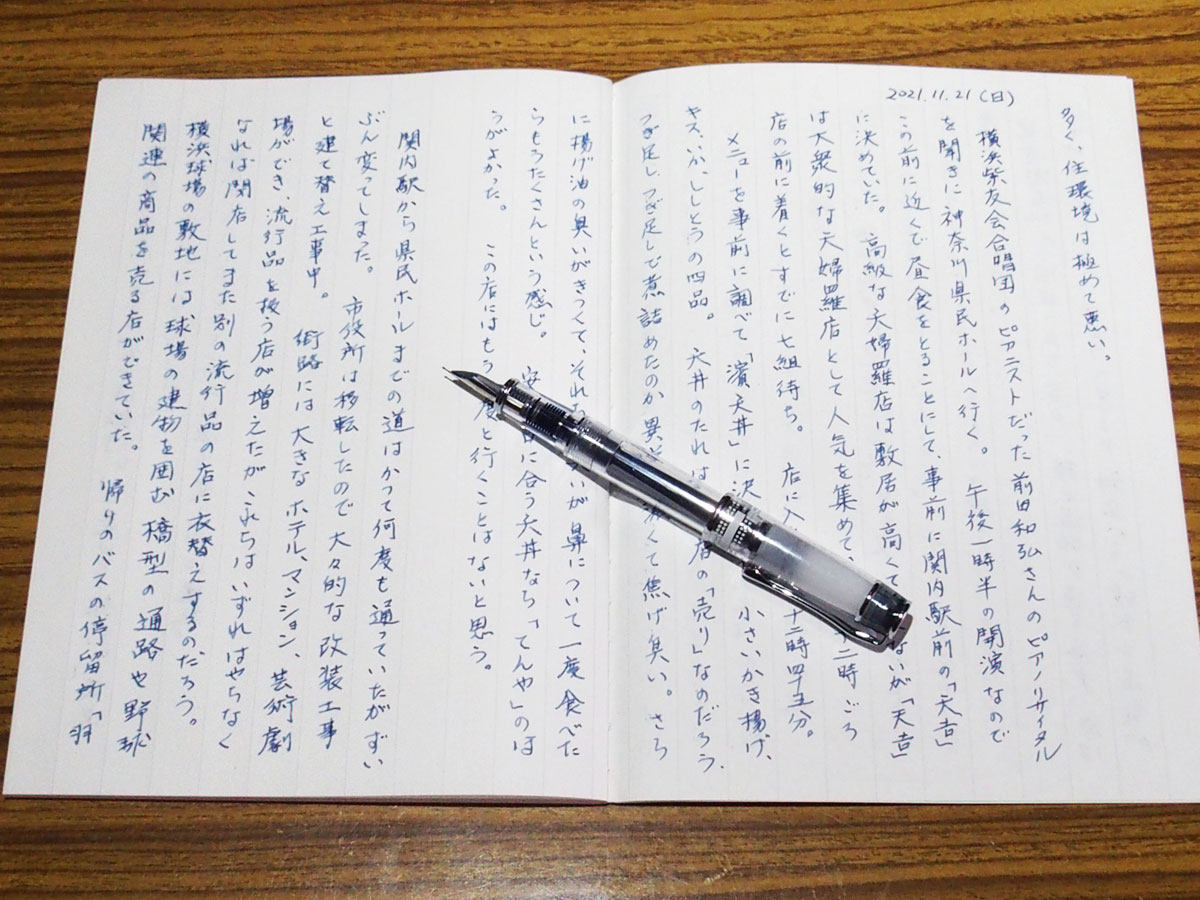 多く、住環境は極めて悪い。
2021.11.21(日)
横浜柴友会合唱団のピアニストだった前田和弘さんのピアノリサイタル
を聞きに神奈川県民ホールへ行く。 午後一時半の開演なので
この前に近くで昼食をとることにして、事前に関内駅前の「天吉」
に決めていた。 高級な天婦羅店は敷居が高くて ないが「天吉」
は大衆的な天婦羅店として人気を集めて、 二時ごろ
店の前に着くとすでに七組待ち。 店に入 十二時四十五分。
メニューを事前に調べて「濱天丼」に決 小さいかき揚げ、
キス、いか、ししとうの四品。 天丼のたれは 店の「売り」なのだろう、
つぎ足し、つぎ足しで煮詰めたのか異 くて焦げ臭い。 さら
に揚げ油の臭いがきつくて、それ いが鼻について一度食べた
らもうたくさんという感じ。 に合う天丼なら「てんや」のほ
うがよかった。 この店にはもう 度と行くことはないと思う。
関内駅から県民ホールまでの道はかつて何度も通っていたがずい
ぶん変ってしまた。 市役所は移転したので大々的な改装工事
と建て替え工事中。 街路には大きなホテル、マンション、芸術劇
場ができ、流行品を扱う店が増えたがこれらはいずれはやらなく
なれば閉店してまた別の流行品の店に衣替えするのだろう。
横浜球場の敷地には球場の建物を囲む橋型の通路や野球
関連の商品を売る店ができていた。 帰りのバスの停留所「羽